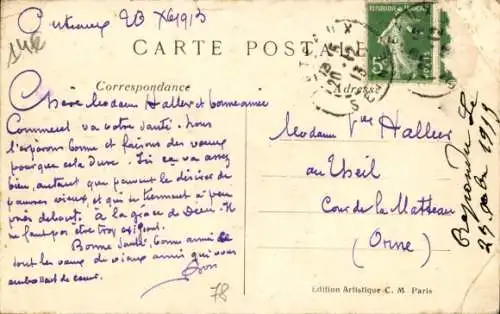 23 Xbre 1913
142
CARTE POSTALE
Correspondance
Adresse
5c
Chère Madame Hallier et bonne amie
Comment va votre santé. Nous
l'espérons bonne et faisons des vœux
pour que cela dure. Ici ça va assez
bien, autant que peuvent le désirer de
pauvres vieux, et qui se tiennent à peu
près debout. À la grâce de Dieu. Il
ne faut pas être trop exigeant.
Bonne santé, bonne année ce
sont les vœux de vieux amis qui vous
embrassent de cœur.
Madame Vve Hallier
au Theil
Cour de la Matteau
(Orne)
Répondu le
78
Edition Artistique C. M. Paris